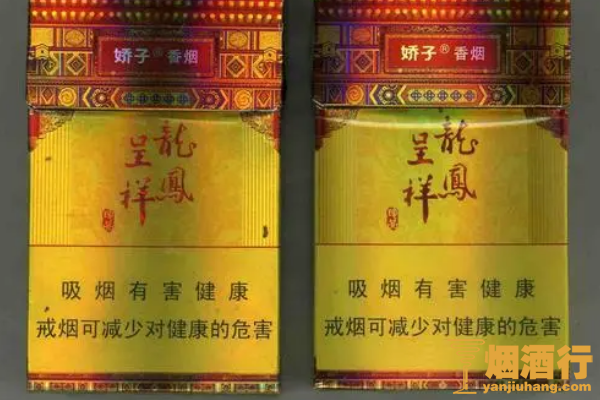 娇子®香烟
龍鳳
呈祥
吸烟有害健康
戒烟可减少对健康的危害
娇子®香烟
龍鳳
呈祥
吸烟有害健康
戒烟可减少对健康的危害
烟酒行
yanjiuhang.com